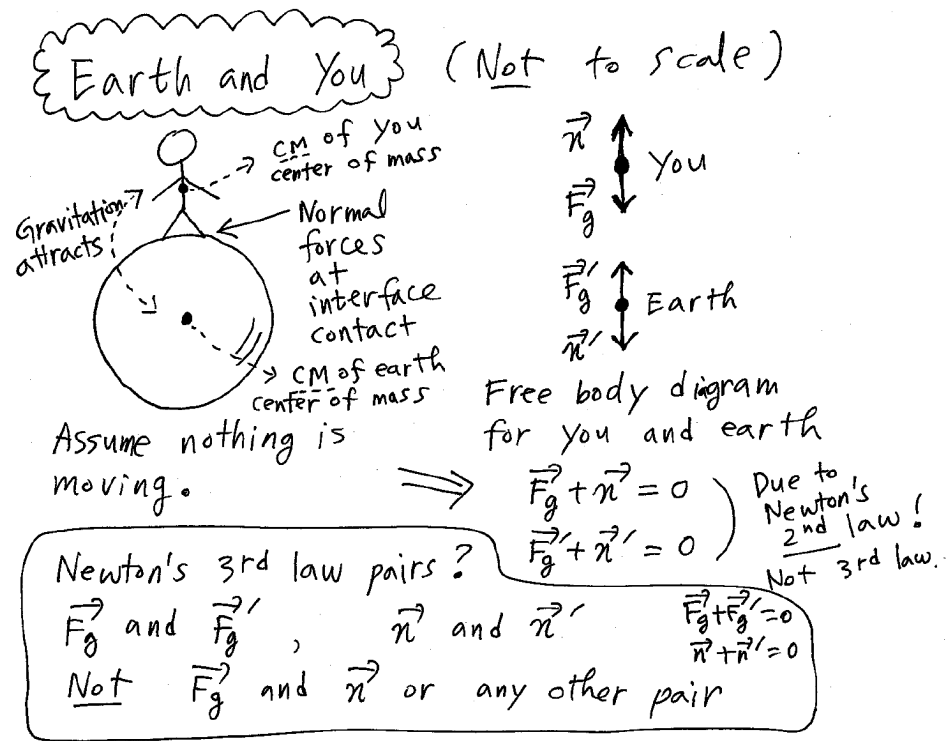 Earth and You (Not to scale)
CM of you
center of mass
Gravitation
attracts
Normal
forces
at
interface
contact
CM of earth
center of mass
n⃗
You
F⃗g
F⃗g′
Earth
n⃗′
Free body diagram
for you and earth
Assume nothing is
moving.
⇒
F⃗g + n⃗ = 0
F⃗g′ + n⃗′ = 0
Due to
Newton's
2nd law!
Not 3rd law.
Newton's 3rd law pairs?
F⃗g and F⃗g′ , n⃗ and n⃗′
F⃗g + F⃗g′ = 0
n⃗ + n⃗′ = 0
Not F⃗g and n⃗ or any other pair